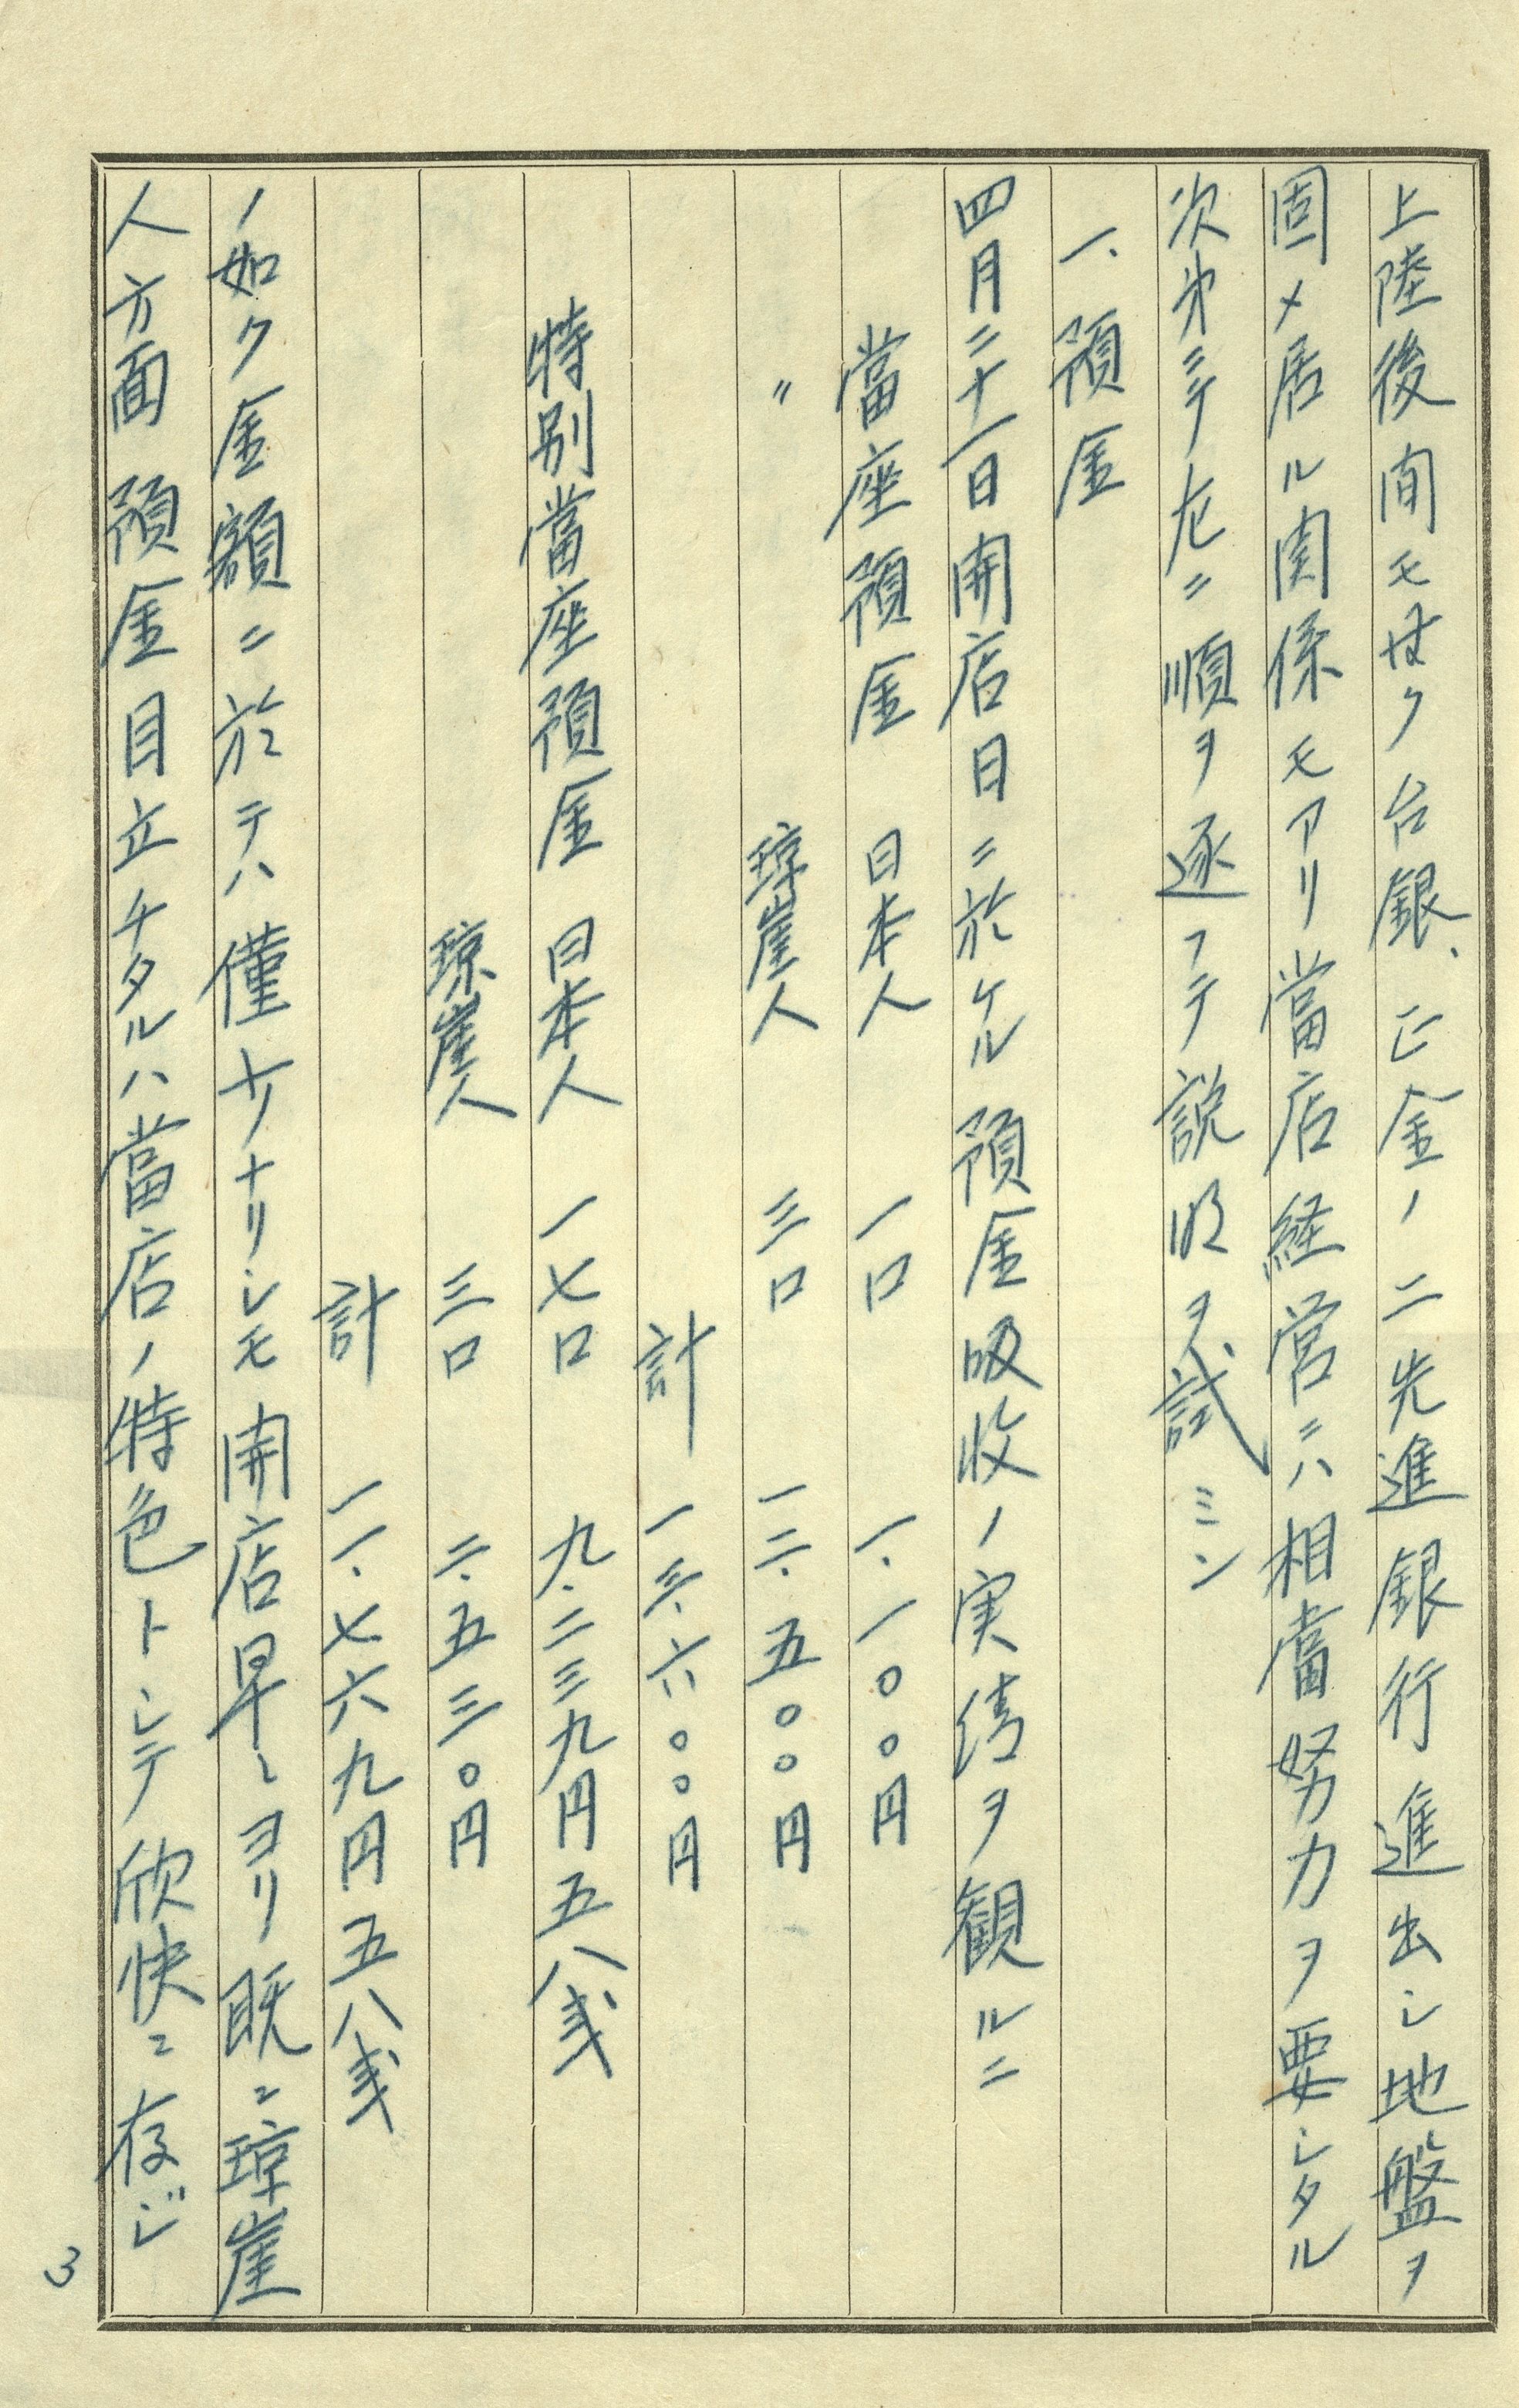 上陸後間モナク台銀、正金ノ二先進銀行進出シ地盤ヲ
固メ居ル関係モアリ當店経営ニハ相當努力ヲ要シタル
次第ニテ左ニ順ヲ逐フテ説明ヲ試ミン
一、預金
四月二十一日開店日ニ於ケル預金吸収ノ実績ヲ観ルニ
當座預金 日本人 一口 一、一〇〇円
〃 瓊崖人 三口 一二、五〇〇円
計 一三、六〇〇円
特別當座預金 日本人 一七口 九、二三九円五八戋
瓊崖人 三口 二、五三〇円
計 一一、七六九円五八戋
ノ如ク金額ニ於テハ僅少ナリシモ開店早々ヨリ既ニ瓊崖
人方面預金目立チタルハ當店ノ特色トシテ欣快ニ存ジ
3